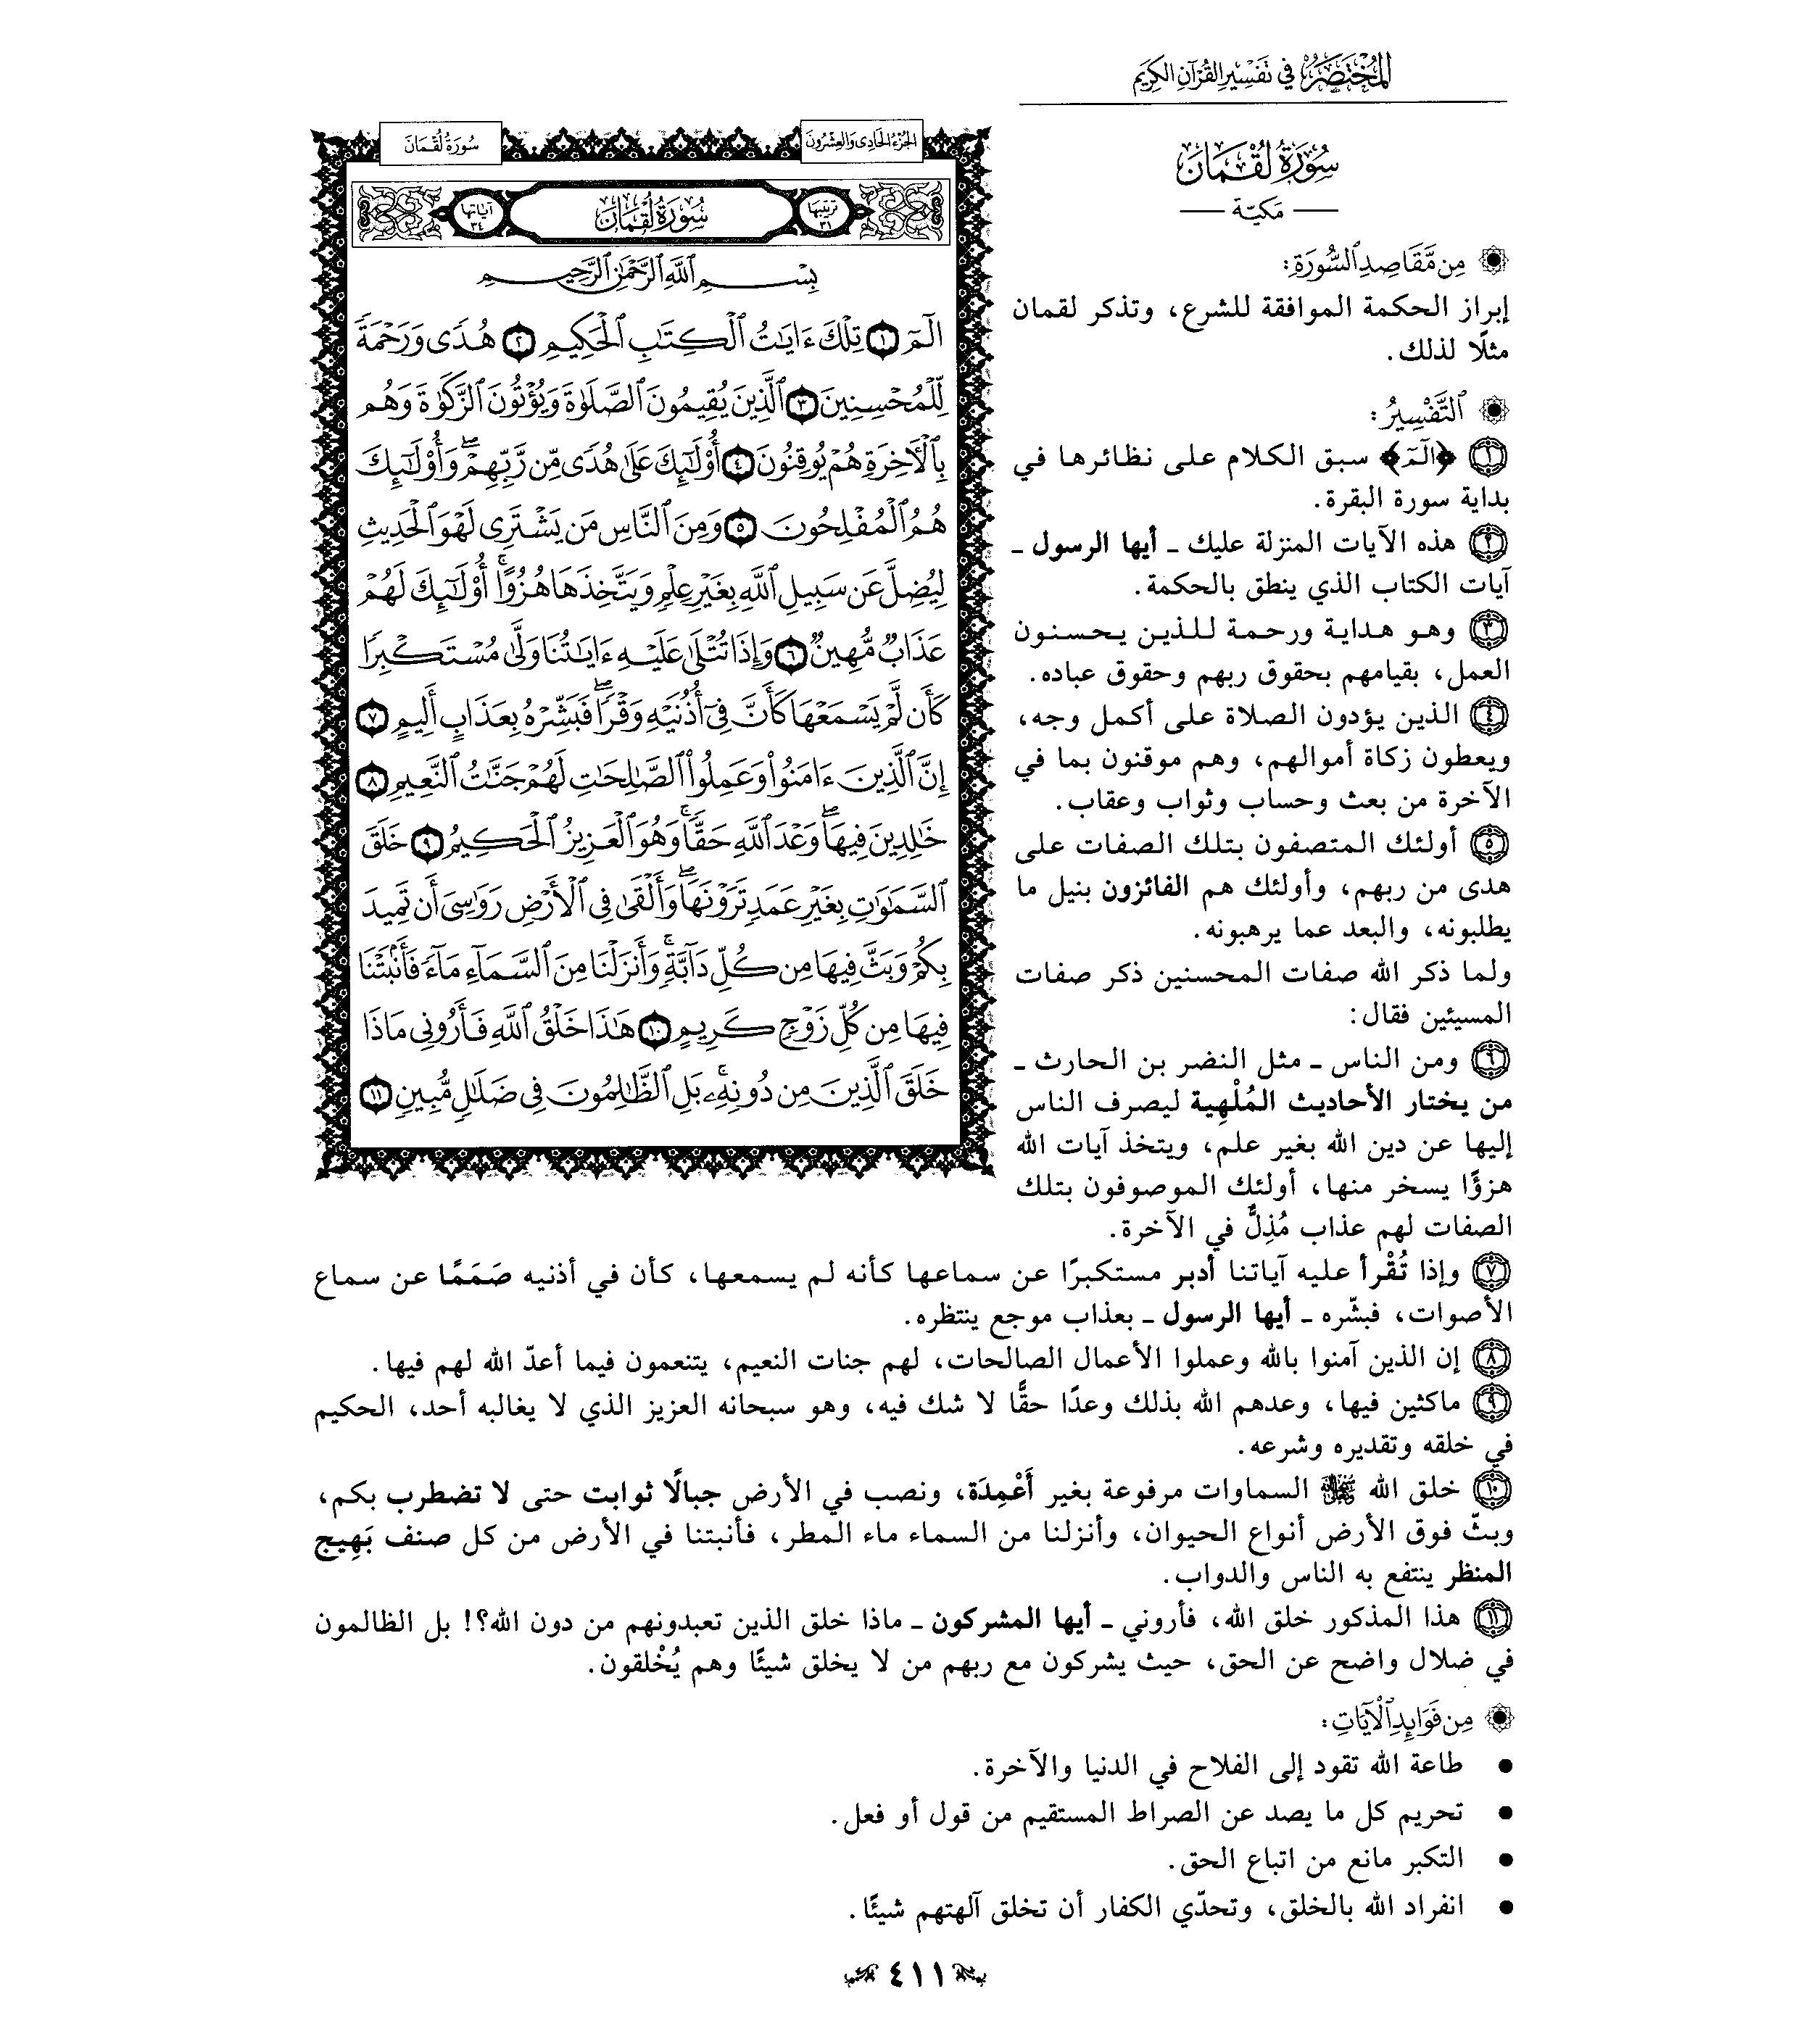 المختصر في تفسير القرآن الكريم
سُورَةُ لُقْمَانَ
— مَكيّة —
مِن مَّقَاصِدِ السُّورَةِ:
إبراز الحكمة الموافقة للشرع، وتذكر لقمان
مثلًا لذلك.
التَّفْسِيرُ:
١ ﴿الٓمٓ﴾ سبق الكلام على نظائرها في
بداية سورة البقرة.
٢ هذه الآيات المنزلة عليك ـ أيها الرسول ـ
آيات الكتاب الذي ينطق بالحكمة.
٣ وهو هداية ورحمة للذين يحسنون
العمل، بقيامهم بحقوق ربهم وحقوق عباده.
٤ الذين يؤدون الصلاة على أكمل وجه،
ويعطون زكاة أموالهم، وهم موقنون بما في
الآخرة من بعث وحساب وثواب وعقاب.
٥ أولئك المتصفون بتلك الصفات على
هدى من ربهم، وأولئك هم الفائزون بنيل ما
يطلبونه، والبعد عما يرهبونه.
ولما ذكر الله صفات المحسنين ذكر صفات
المسيئين فقال:
٦ ومن الناس ـ مثل النضر بن الحارث ـ
من يختار الأحاديث المُلْهِية ليصرف الناس
إليها عن دين الله بغير علم، ويتخذ آيات الله
هزؤًا يسخر منها، أولئك الموصوفون بتلك
الصفات لهم عذاب مُذِلٌّ في الآخرة.
الجُزْءُ الحَادِي وَالعِشْرُونَ
سُورَةُ لُقْمَانَ
ترتيبها ٣١
سُورَةُ لُقْمَانَ
آياتها ٣٤
بِسْمِ ٱللَّهِ ٱلرَّحْمَٰنِ ٱلرَّحِيمِ
الٓمٓ ١ تِلْكَ ءَايَٰتُ ٱلْكِتَٰبِ ٱلْحَكِيمِ ٢ هُدًى وَرَحْمَةً
لِّلْمُحْسِنِينَ ٣ ٱلَّذِينَ يُقِيمُونَ ٱلصَّلَوٰةَ وَيُؤْتُونَ ٱلزَّكَوٰةَ وَهُم
بِٱلْأَخِرَةِ هُمْ يُوقِنُونَ ٤ أُوْلَٰٓئِكَ عَلَىٰ هُدًى مِّن رَّبِّهِمْۖ وَأُوْلَٰٓئِكَ
هُمُ ٱلْمُفْلِحُونَ ٥ وَمِنَ ٱلنَّاسِ مَن يَشْتَرِى لَهْوَ ٱلْحَدِيثِ
لِيُضِلَّ عَن سَبِيلِ ٱللَّهِ بِغَيْرِ عِلْمٍ وَيَتَّخِذَهَا هُزُوًاۚ أُوْلَٰٓئِكَ لَهُمْ
عَذَابٌ مُّهِينٌ ٦ وَإِذَا تُتْلَىٰ عَلَيْهِ ءَايَٰتُنَا وَلَّىٰ مُسْتَكْبِرًا
كَأَن لَّمْ يَسْمَعْهَا كَأَنَّ فِىٓ أُذُنَيْهِ وَقْرًاۖ فَبَشِّرْهُ بِعَذَابٍ أَلِيمٍ ٧
إِنَّ ٱلَّذِينَ ءَامَنُواْ وَعَمِلُواْ ٱلصَّٰلِحَٰتِ لَهُمْ جَنَّٰتُ ٱلنَّعِيمِ ٨
خَٰلِدِينَ فِيهَاۖ وَعْدَ ٱللَّهِ حَقًّاۚ وَهُوَ ٱلْعَزِيزُ ٱلْحَكِيمُ ٩ خَلَقَ
ٱلسَّمَٰوَٰتِ بِغَيْرِ عَمَدٍ تَرَوْنَهَاۖ وَأَلْقَىٰ فِى ٱلْأَرْضِ رَوَٰسِىَ أَن تَمِيدَ
بِكُمْ وَبَثَّ فِيهَا مِن كُلِّ دَآبَّةٍۚ وَأَنزَلْنَا مِنَ ٱلسَّمَآءِ مَآءً فَأَنۢبَتْنَا
فِيهَا مِن كُلِّ زَوْجٍ كَرِيمٍ ١٠ هَٰذَا خَلْقُ ٱللَّهِ فَأَرُونِى مَاذَا
خَلَقَ ٱلَّذِينَ مِن دُونِهِۦۚ بَلِ ٱلظَّٰلِمُونَ فِى ضَلَٰلٍ مُّبِينٍ ١١
٧ وإذا تُقْرأ عليه آياتنا أدبر مستكبرًا عن سماعها كأنه لم يسمعها، كأن في أذنيه صَمَمًا عن سماع
الأصوات، فبشّره ـ أيها الرسول ـ بعذاب موجع ينتظره.
٨ إن الذين آمنوا بالله وعملوا الأعمال الصالحات، لهم جنات النعيم، يتنعمون فيما أعدّ الله لهم فيها.
٩ ماكثين فيها، وعدهم الله بذلك وعدًا حقًّا لا شك فيه، وهو سبحانه العزيز الذي لا يغالبه أحد، الحكيم
في خلقه وتقديره وشرعه.
١٠ خلق الله ﷻ السماوات مرفوعة بغير أَعْمِدَة، ونصب في الأرض جبالًا ثوابت حتى لا تضطرب بكم،
وبثّ فوق الأرض أنواع الحيوان، وأنزلنا من السماء ماء المطر، فأنبتنا في الأرض من كل صنف بَهِيج
المنظر ينتفع به الناس والدواب.
١١ هذا المذكور خلق الله، فأروني ـ أيها المشركون ـ ماذا خلق الذين تعبدونهم من دون الله؟! بل الظالمون
في ضلال واضح عن الحق، حيث يشركون مع ربهم من لا يخلق شيئًا وهم يُخْلقون.
مِن فَوَائِدِ الْآيَاتِ:
• طاعة الله تقود إلى الفلاح في الدنيا والآخرة.
• تحريم كل ما يصد عن الصراط المستقيم من قول أو فعل.
• التكبر مانع من اتباع الحق.
• انفراد الله بالخلق، وتحدّي الكفار أن تخلق آلهتهم شيئًا.
٤١١